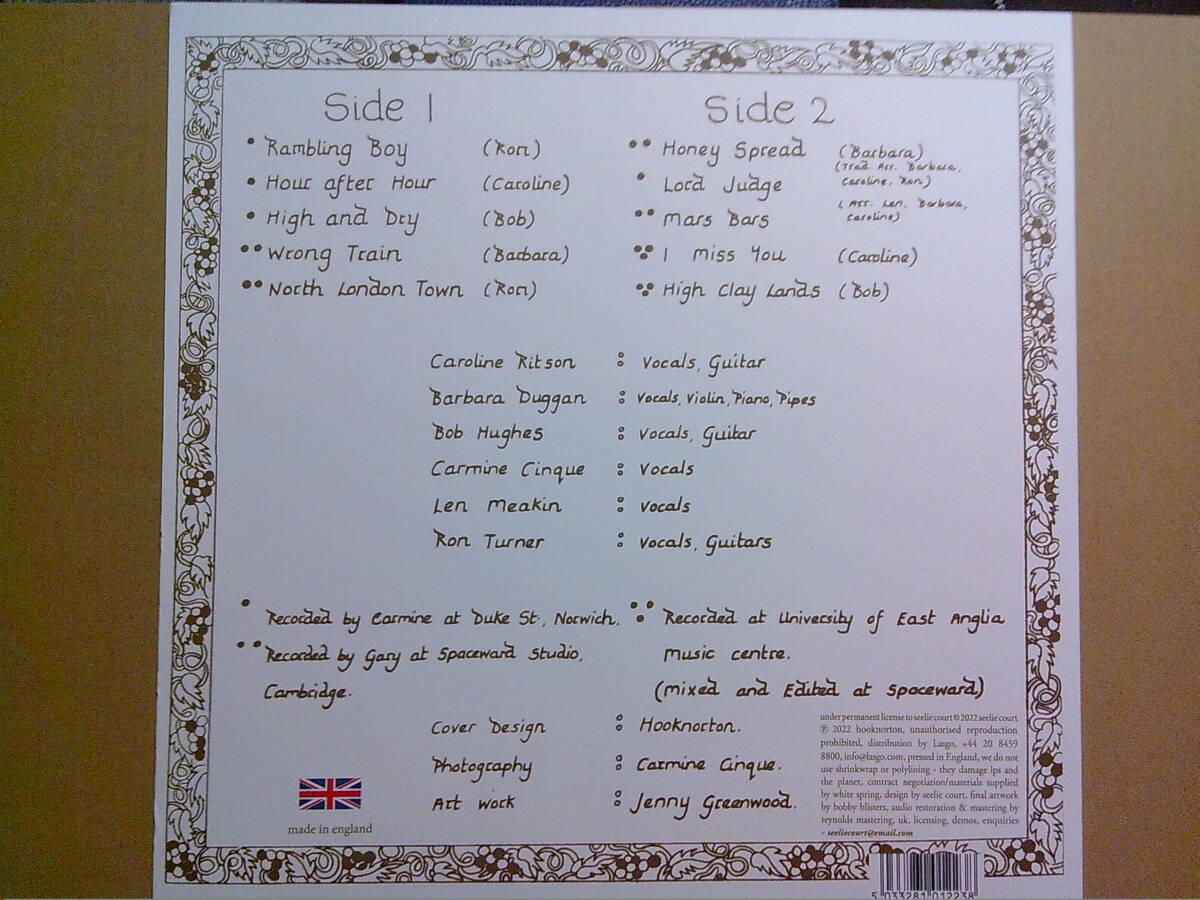 Side 1
• Rambling Boy (Ron)
• Hour after Hour (Caroline)
• High and Dry (Bob)
•• Wrong Train (Barbara)
•• North London Town (Ron)
Side 2
•• Honey Spread (Barbara)
• Lord Judge (Trad Arr. Barbara,
Caroline, Ron)
•• Mars Bars (Arr. Len, Barbara,
Caroline)
••• I miss You (Caroline)
••• High Clay Lands (Bob)
Caroline Ritson : Vocals, Guitar
Barbara Duggan : Vocals, Violin, Piano, Pipes
Bob Hughes : Vocals, Guitar
Carmine Cinque : Vocals
Len Meakin : Vocals
Ron Turner : Vocals, Guitars
• Recorded by Carmine at Duke St., Norwich.
•• Recorded by Gary at Spaceward Studio,
Cambridge.
••• Recorded at University of East Anglia
Music centre.
(Mixed and Edited at Spaceward)
Cover Design : Hooknorton.
Photography : Carmine Cinque.
Art work : Jenny Greenwood.
made in england
under permanent license to seelie court © 2022 seelie court
℗ 2022 hooknorton, unauthorised reproduction
prohibited, distribution by Lasgo, +44 20 8459
8800, info@lasgo.com, pressed in England, we do not
use shrinkwrap or polylining - they damage lps and
the planet, contract negotiation/materials supplied
by white spring, design by seelie court, final artwork
by bobby blisters, audio restoration & mastering by
reynolds mastering, uk. licensing, demos, enquiries
- seeliecourt@email.com
5 033281 012238